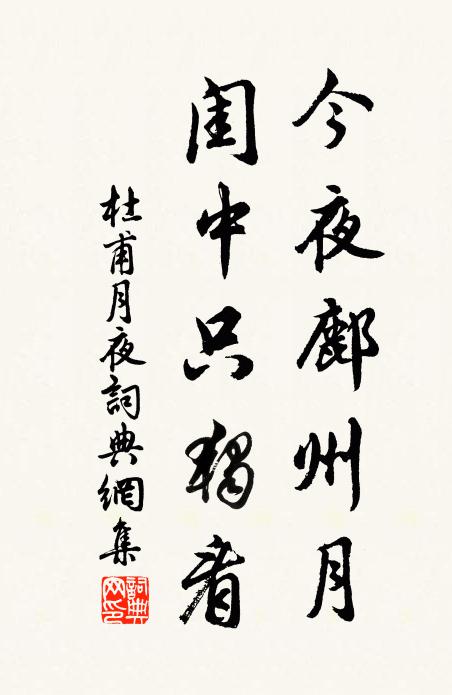 今夜鄜州月
閨中只獨看
杜甫月夜詞典網集
詞典网印